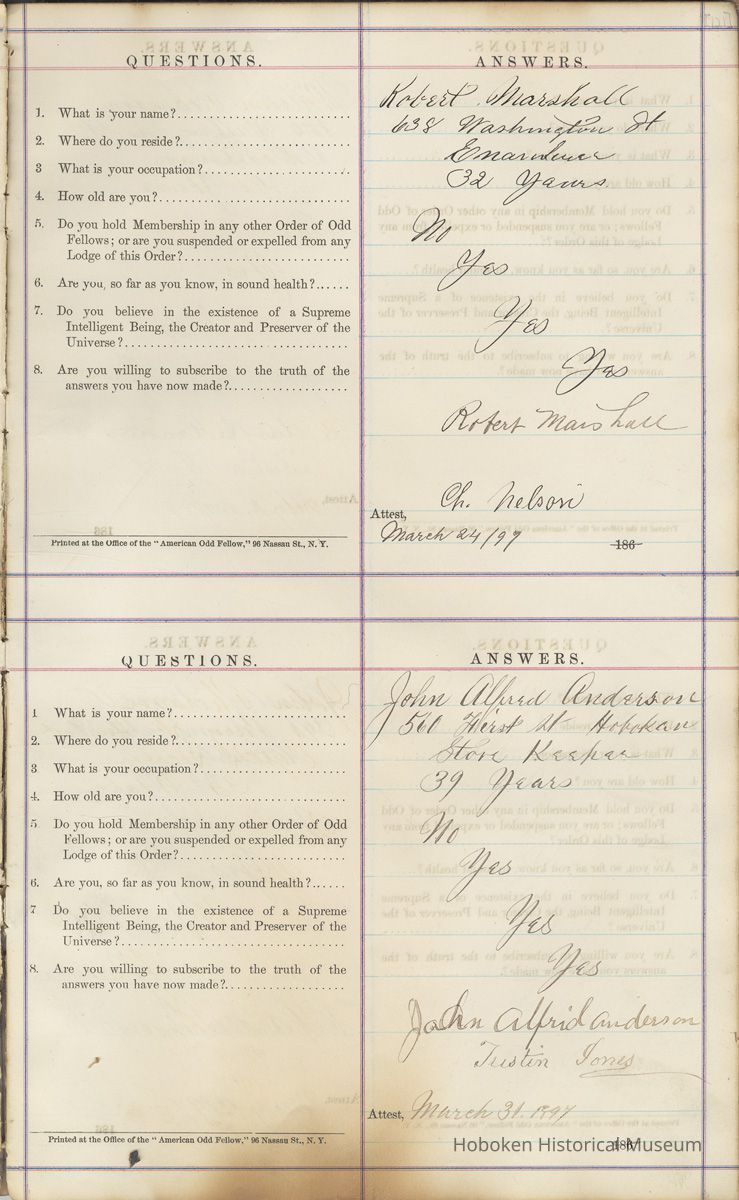 QUESTIONS.
ANSWERS.
1. What is your name?
Robert Marshall
2. Where do you reside?
638 Washington St
3 What is your occupation?
4. How old are you?
32 Years
5. Do you hold Membership in any other Order of Odd
Fellows; or are you suspended or expelled from any
Lodge of this Order?
No
6. Are you, so far as you know, in sound health?
Yes
7. Do you believe in the existence of a Supreme
Intelligent Being, the Creator and Preserver of the
Universe?
Yes
8. Are you willing to subscribe to the truth of the
answers you have now made?
Yes
Robert Marshall
Ch. Nelson
Attest,
March 24/97
186
Printed at the Office of the "American Odd Fellow," 96 Nassau St., N. Y.
QUESTIONS.
ANSWERS.
1 What is your name?
John Alfred Anderson
2. Where do you reside?
560 St Hoboken
3 What is your occupation?
Store Keeper
4. How old are you?
39 Years
5 Do you hold Membership in any other Order of Odd
Fellows; or are you suspended or expelled from any
Lodge of this Order?
No
6. Are you, so far as you know, in sound health?
Yes
7 Do you believe in the existence of a Supreme
Intelligent Being, the Creator and Preserver of the
Universe?
Yes
8. Are you willing to subscribe to the truth of the
answers you have now made?
Yes
John Alfrid anderson
Jones
Attest, March 31. 1897
186
Printed at the Office of the "American Odd Fellow," 96 Nassau St., N. Y.
Hoboken Historical Museum